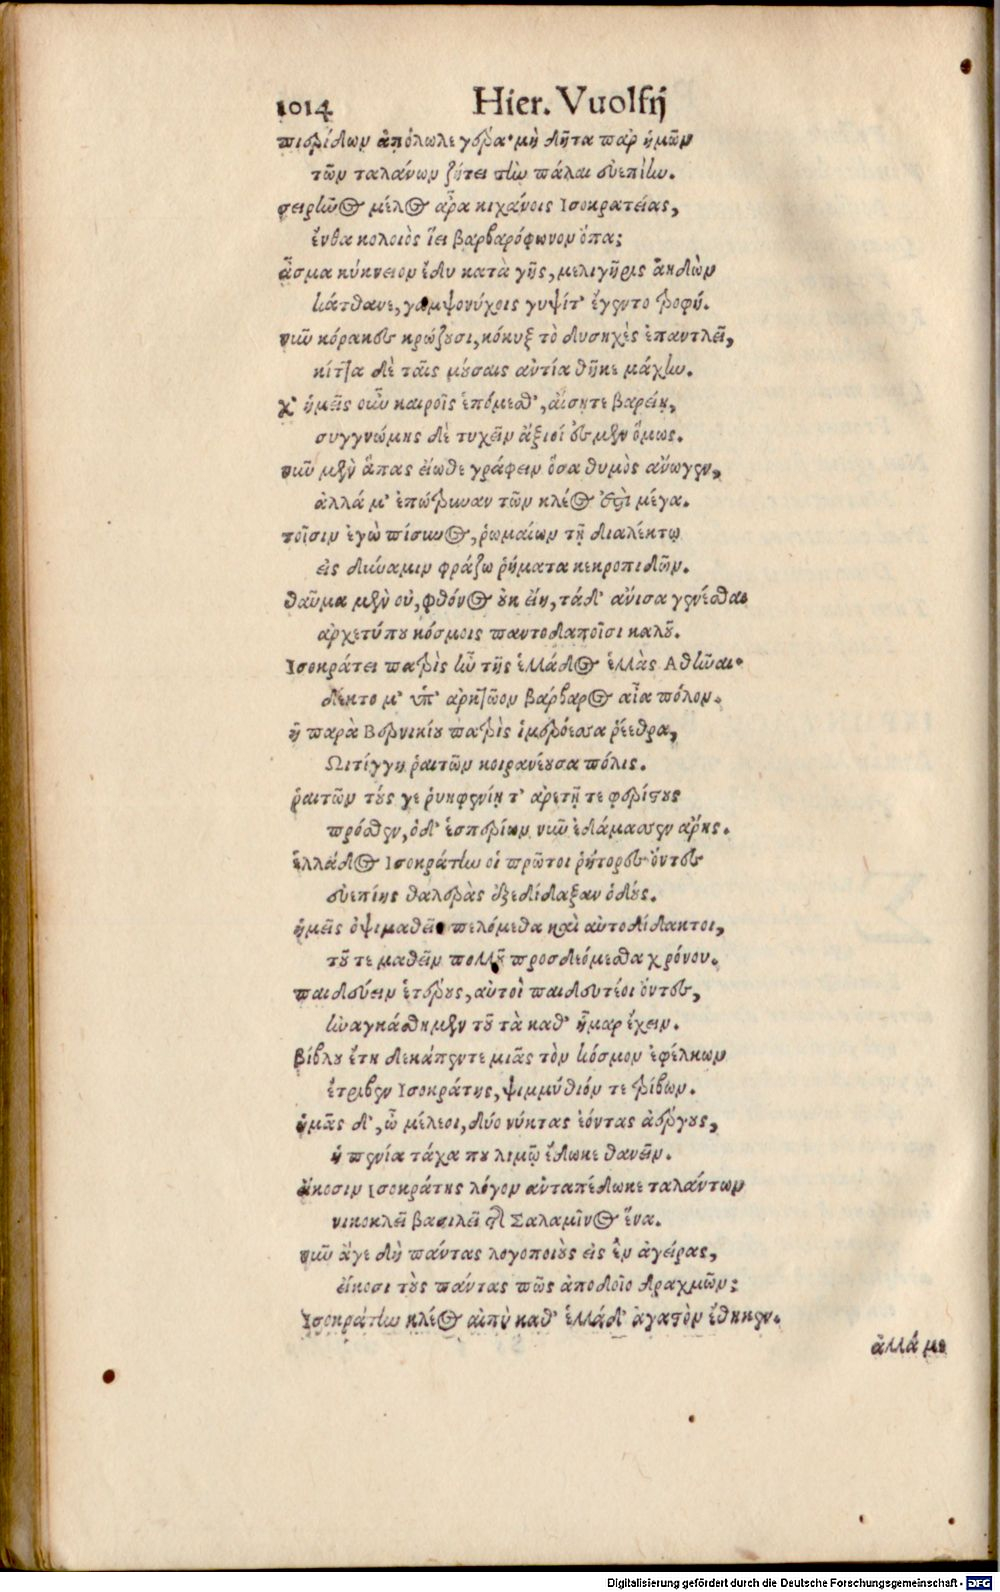 1014 Hier. Vuolfij
πιερίδων ἀπόλωλε γέρα· μὴ δῆτα παρ ἡμῶν
τῶν ταλάνων ζήτει τὴν πάλαι εὐεπίην.
σειρῆνος μέλος ἆρα κιχάνοις Ισοκρατείας,
ἔνθα κολοιὸς ἵει βαρβαρόφωνον ὄπα;
ᾆσμα κύκνειον ἔδυ κατὰ γῆς, μελιγῆρις ἀηδὼν
κάτθανε, γαμψονύχοις γυψίτ' ἔγεντο τροφή.
νῦν κόρακες κρώζουσι, κόκυξ τὸ δυσηχὲς ἐπαντλεῖ,
κίττα δὲ ταῖς μούσαις αὐτία θῆκε μάχην.
χ' ἡμεῖς οὖν καιροῖς ἑπόμεσθ', αἴσῃτε βαρείῃ,
συγγνώμης δὲ τυχεῖν ἄξιοί ἐσμεν ὅμως.
νῦν μὲν ἅπας εἴωθε γράφειν ὅσα θυμὸς ἀνώγεν,
ἀλλά μ' ἐπώτρυναν τῶν κλέος ἐστὶ μέγα.
τοῖσιν ἐγὼ πίσυνος, ῥωμαίων τῇ διαλέκτῳ
εἰς δύναμιν φράζω ῥήματα κεκροπιδῶν.
θαῦμα μὲν οὐ, φθόνος οὐκ εἴη, τάδ' ἄνισα γενέσθαι
ἀρχετύπου κόσμοις παντοδαποῖσι καλοῦ.
Ισοκράτει πατρὶς ἦν τῆς ἑλλάδος ἑλλὰς Αθῆναι·
δέκτο μ' ὑπ' ἀρκτῶον βάρβαρος αἶα πόλον.
ἢ παρὰ Βερνικίου πατρὶς ἱμερόεσσα ῥέεθρα,
Ωιτίγγη ῥαιτῶν κοιρανέουσα πόλις.
ῥαιτῶν τούς γε ῥυηφενίῃ τ' ἀρετῇ τε φερίστους
πρόσθεν, ὁδ' ἑσπερίων νῦν ἐδάμασσεν ἄρης.
ἑλλάδος Ισοκράτην οἱ πρῶτοι ῥήτορες ὄντες
εὐεπίης θαλερὰς ἐξεδίδαξαν ὁδούς.
ἡμεῖς ὀψιμαθεῖς πελόμεθα καὶ αὐτοδίδακτοι,
τοῦ τε μαθεῖν πολλοῦ προσδεόμεσθα χρόνου.
παιδεύειν ἑτέρους, αὐτοὶ παιδευτέοι ὄντες,
ἠναγκάσθημεν τοῦ τὰ καθ' ἦμαρ ἔχειν.
βίβλου ἔτη δεκάπεντε μιᾶς τὸν κόσμον ἐφέλκων
ἔτριβεν Ισοκράτης, ψιμμύθιόν τε τρίβων.
ἡμᾶς δ', ὦ μέλεοι, δύο νύκτας ἐόντας ἀέργους,
ἡ πενία τάχα που λιμῷ ἔδωκε θανεῖν.
εἴκοσιν Ισοκράτης λόγον ἀνταπέδωκε ταλάντων
νικοκλεῖ βασιλεῖ τῆς Σαλαμῖνος ἕνα.
νῦν ἄγε δὴ πάντας λογοποιοὺς εἰς ἓν ἀγείρας,
εἴκοσι τοὺς πάντας πῶς ἀποδοῖο δραχμῶν;
Ισοκράτην κλέος αἰπὺ καθ' ἑλλάδ' ἀγαστὸν ἔθηκεν.
ἀλλά με
Digitalisierung gefördert durch die Deutsche Forschungsgemeinschaft - DFG